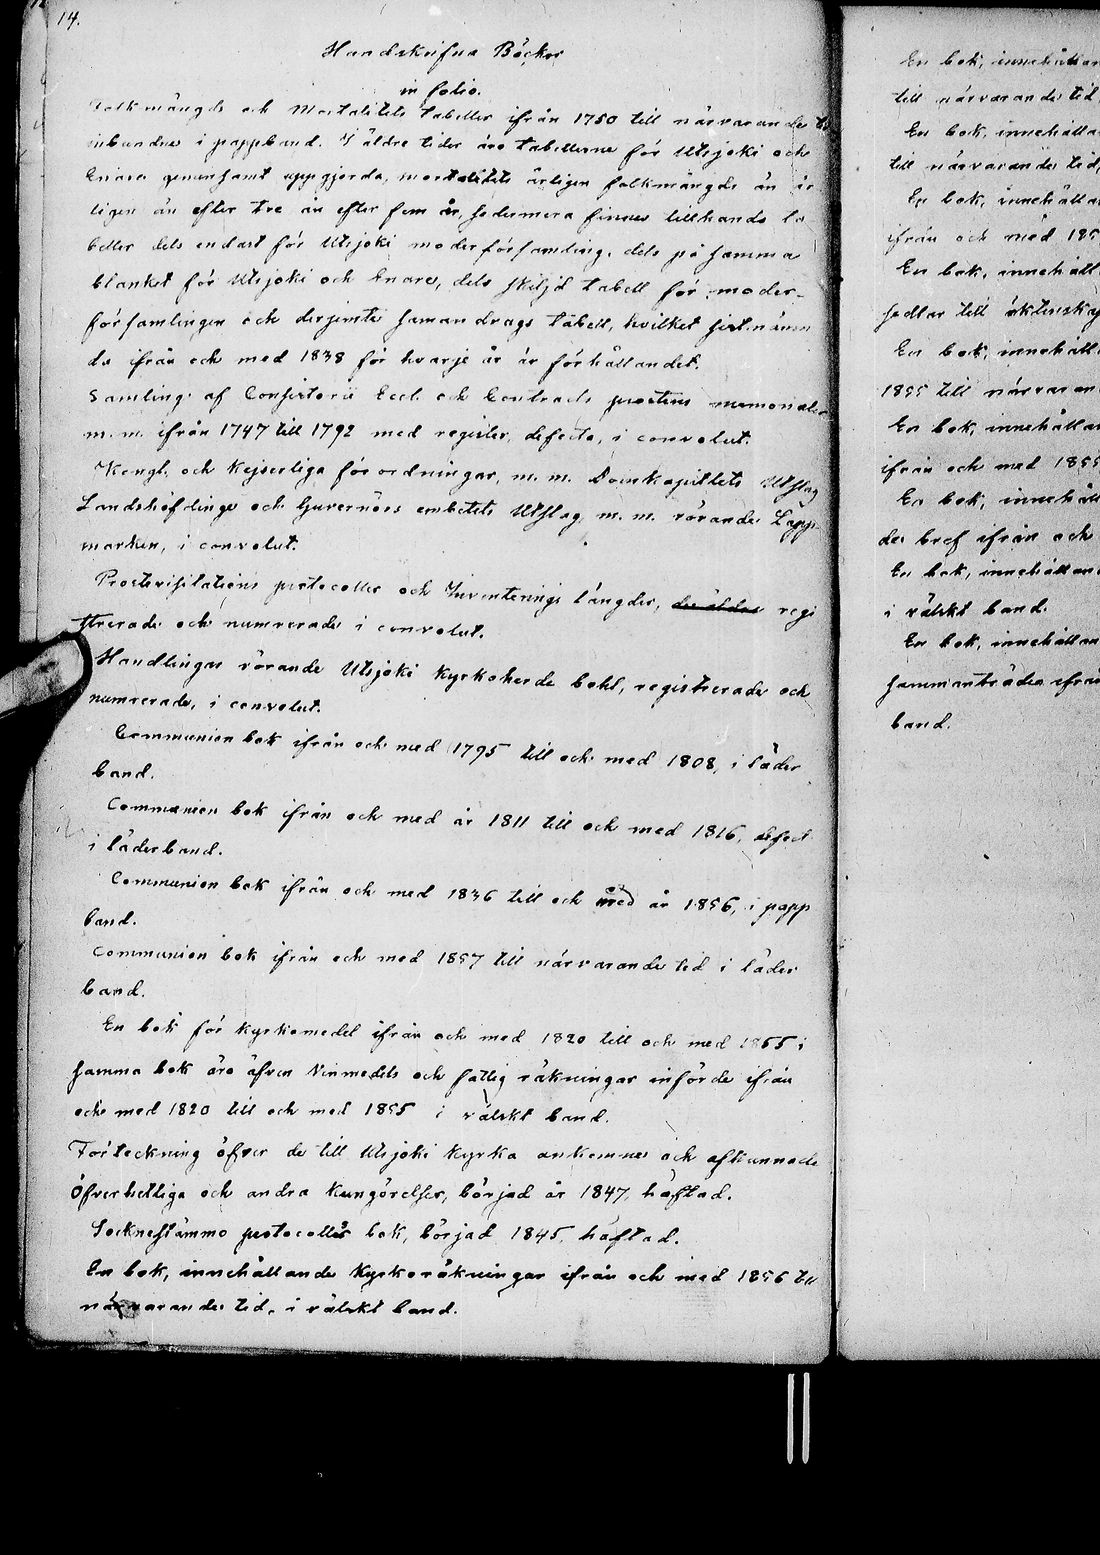 14.
Handskrifna Böcker
in folio.
Folkmängds och Mortalitets Tabeller ifrån 1750 till närvarande
inbundne i pappband. I äldre tider äro tabellerne för Utsjoki och
Enare gemensamt uppgjorda, mortalitets årligen folkmängds än år
ligen än efter tre än efter fem år, sedermera finnes tillhands ta
beller dels endast för Utsjoki moderförsamling, dels på samma
blankett för Utsjoki och Enare, dels skiljd tabell för moder-
församlingen och derjemte samandrags tabell, hvilket sistnämn
da ifrån och med 1838 för hvarje år är förhållandet.
Samling af Consistorii Eccl. och Contracts prostens memorialer
m. m. ifrån 1747 till 1792 med register, defecta, i convolut.
Kongl. och Kejserliga förordningar, m. m. Domkapitlets Utslag
Landshöfdinge och Guvernörs embetets Utslag, m. m. rörande Lapp
marken, i convolut.
Prostevisitations protocoller och Inventerings längder, regi
strerade och numrerade i convolut.
Handlingar rörande Utsjoki Kyrkoherde bohl, registrerade och
numrerade, i convolut.
Communion bok ifrån och med 1795 till och med 1808, i läder
band.
Communion bok ifrån och med år 1811 till och med 1816, defect
i läderband.
Communion bok ifrån och med 1836 till och med år 1856, i papp
band.
Communion bok ifrån och med 1857 till närvarande tid i läder
band.
En bok för Kyrkomedel ifrån och med 1820 till och med 1855 i
samma bok äro äfven Vinmedels och fattig räkningar införde ifrån
och med 1820 till och med 1855 i välskt band.
Förteckning öfver de till Utsjoki Kyrka ankomne och afkunnade
Öfverhetliga och andra Kungörelser, börjad år 1847, häftad.
Socknestämmo protocolls bok, börjad 1845, häftad.
En bok, innehållande Kyrkoräkningar ifrån och med 1856 till
närvarande tid, i välskt band.
En bok, innehållan
till närvarande tid
En bok, innehålla
till närvarande tid,
En bok, innehålla
ifrån och med 185
En bok, innehåll
sedlar till äktenskap
En bok, innehåll
1855 till närvaran
En bok, innehållan
ifrån och med 1855
En bok, innehåll
de bref ifrån och
En bok, innehållan
i välskt band.
En bok, innehållan
sammanträden ifrån
band.